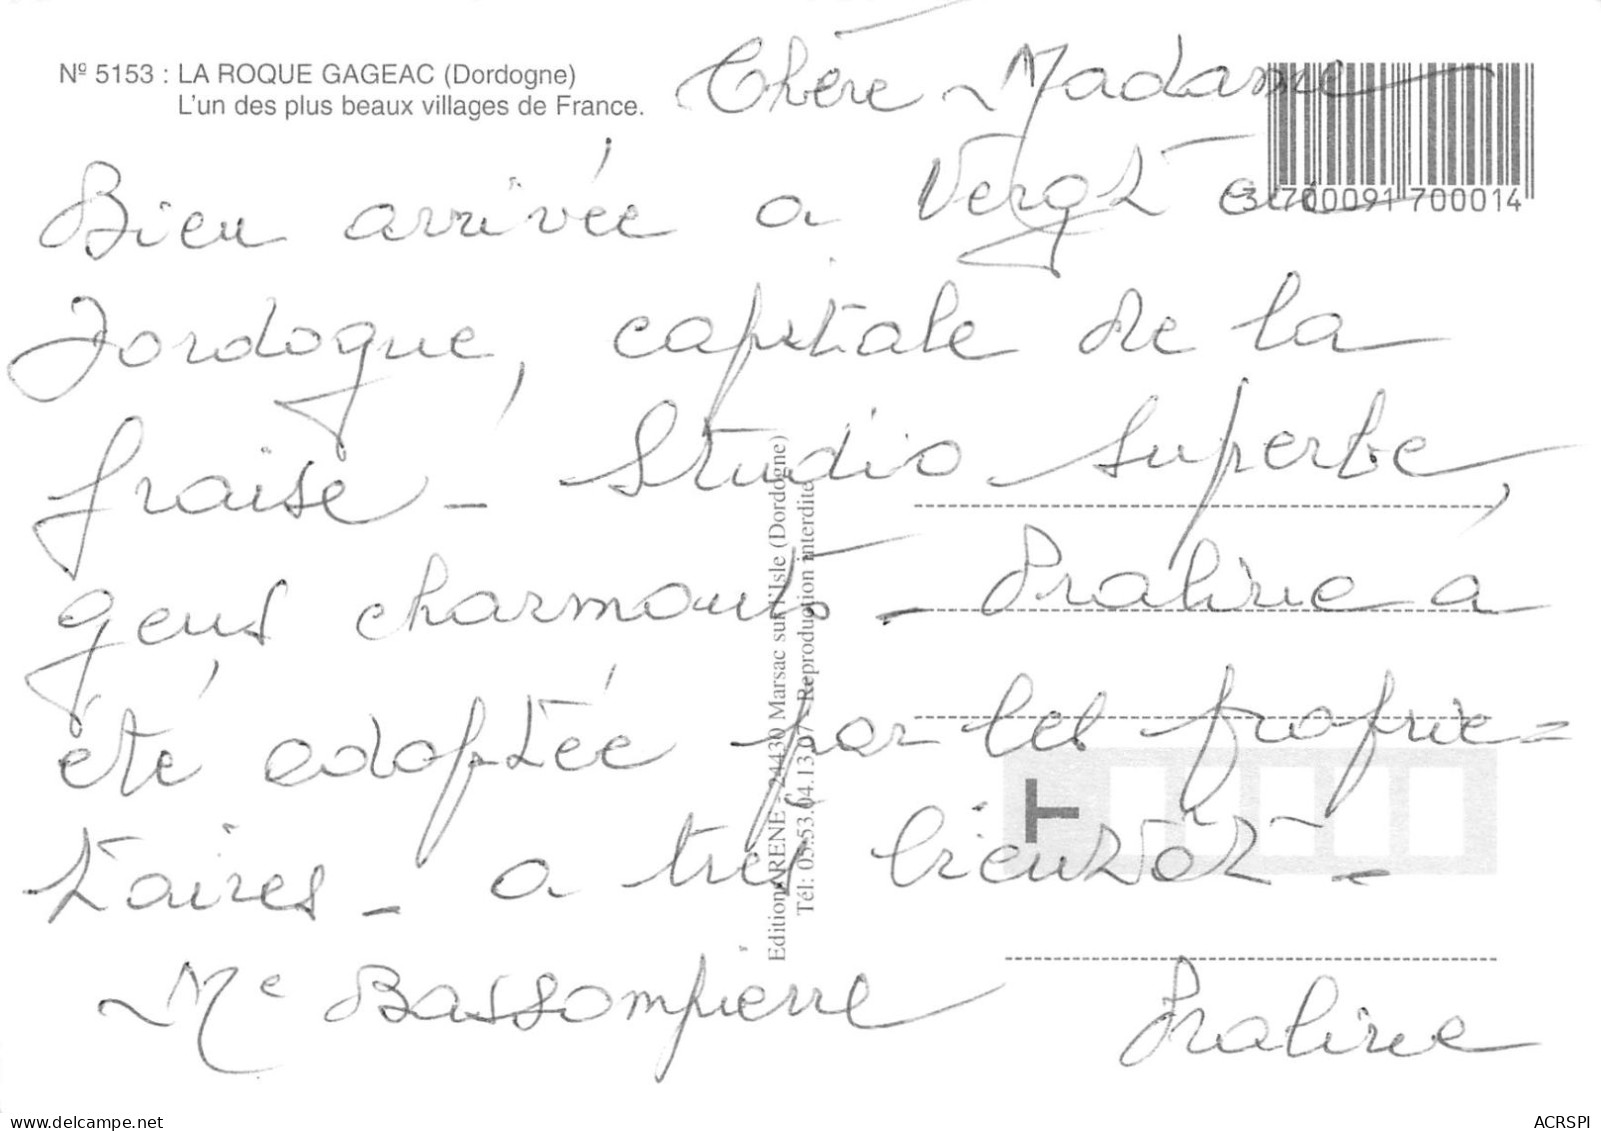 Nº 5153 : LA ROQUE GAGEAC (Dordogne)
L'un des plus beaux villages de France.
Chère Madame
Bien arrivée a Vergt en
3 700091 700014
Dordogne, capitale de la
fraise - Studio superbe,
gens charmants - Praline a
été adoptée par les proprié=
taires - a très bientôt -
Me Bassompierre Praline
Editions RENÉ - 24430 Marsac sur l'Isle (Dordogne)
Tél: 05.53.04.13.07 - Reproduction interdite
T
ACRSPI
delcampe.net